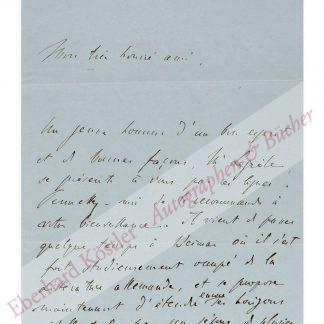 Mon très honoré ami.
Un jeune homme d'un bon esprit
et de bonnes façons,
se présente à vous par ces lignes.
Permettez-moi de le recommander à
votre bienveillance. Il vient de passer
quelque temps à Weimar où il s'est
fort studieusement occupé de la
littérature allemande, et se propose
maintenant d'étendre encore ses horizons
Eberhard Köstler Autographen & Bücher